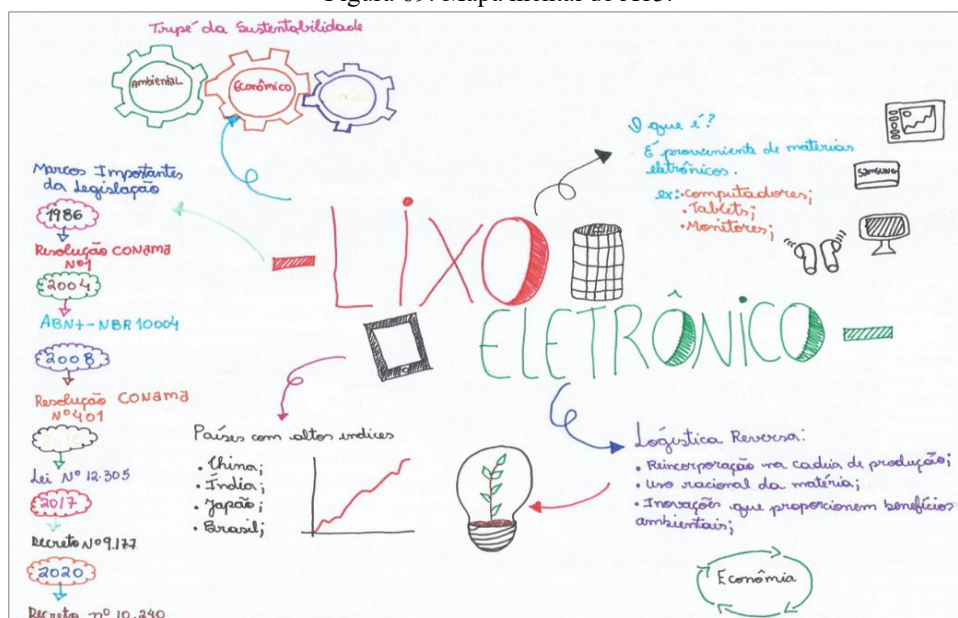 Tripé da Sustentabilidade
Ambiental
Econômico
Marcos Importantes
da Legislação
1986
Resolução CONAMA
Nº1
2004
ABNT-NBR 10004
2008
Resolução CONAMA
Nº401
Lei Nº 12.305
2017
Decreto Nº9.177
2020
Decreto nº 10.240
- LIXO
ELETRÔNICO -
O que é?
É proveniente de matérias
eletrônicos.
ex:• computadores;
• Tablets;
• Monitores;
SAMSUNG
Países com altos indices
• China;
• Índia;
• Japão;
• Brasil;
Lógistica Reversa:
• Reincorporação na cadeia de produção;
• uso racional da matéria;
• Inovações que proporcionem benefícios
ambientais;
Econômia